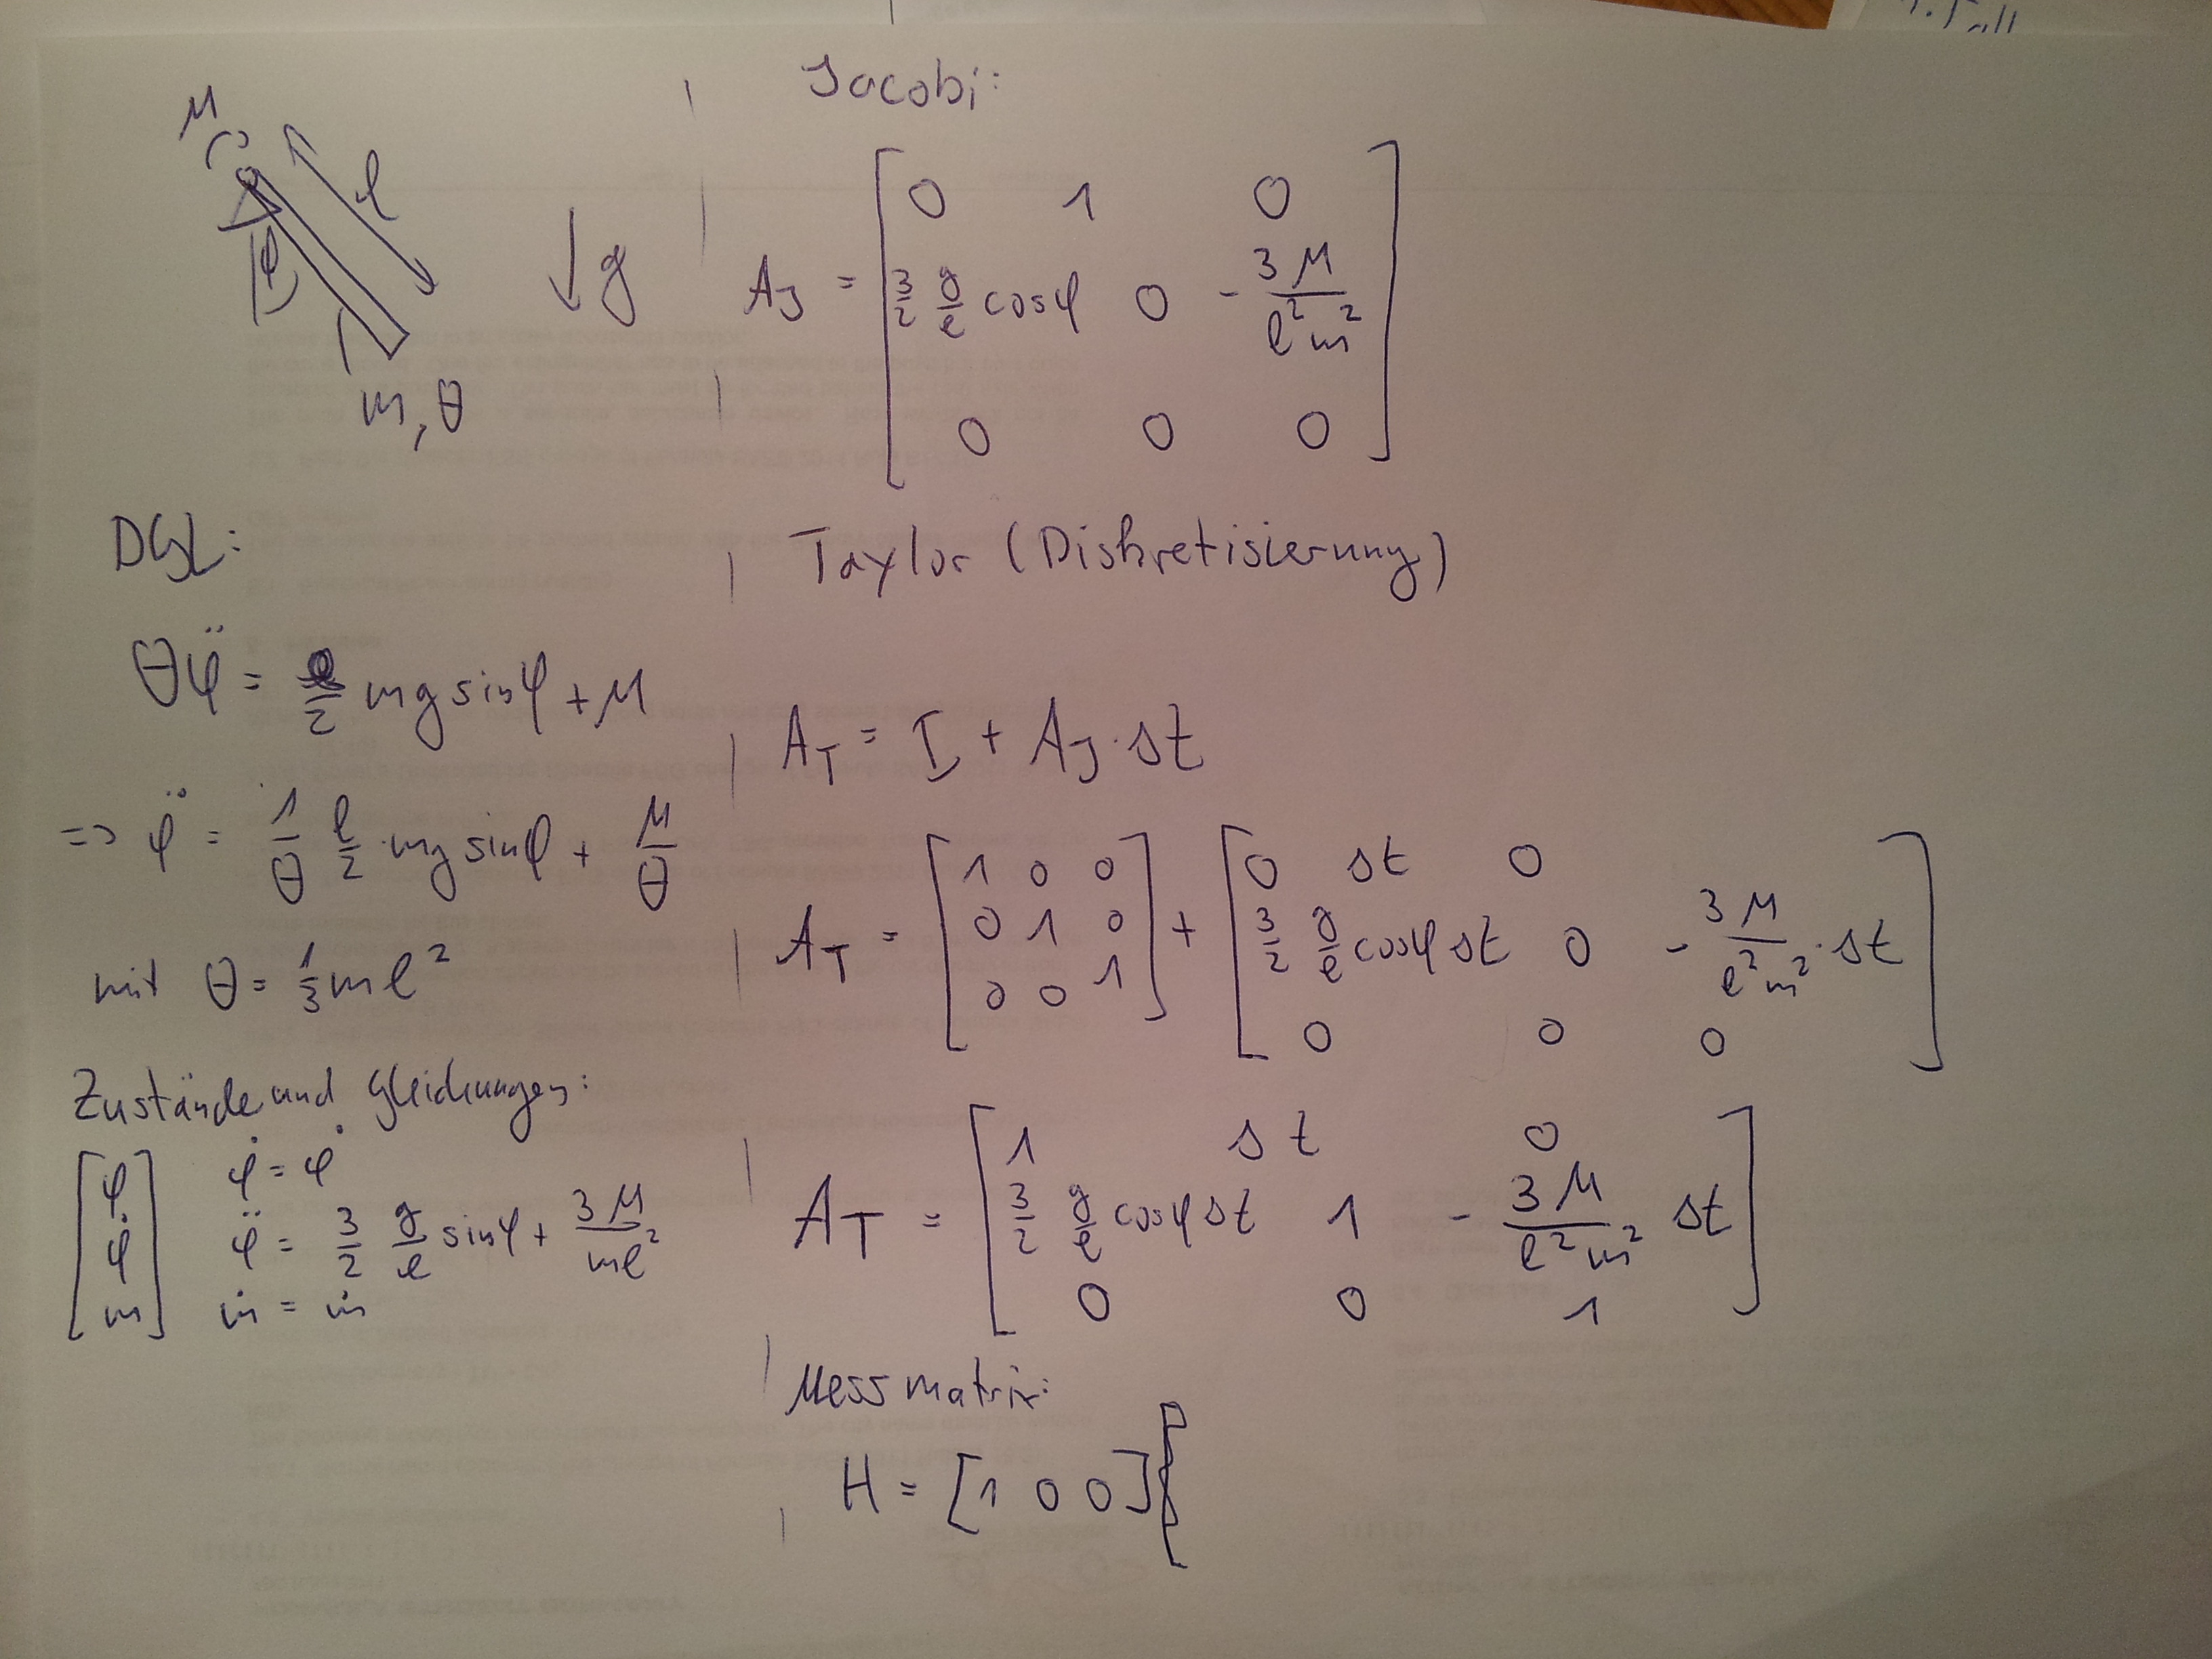 M
l
φ
g
m, θ
DGL:
θφ̈ = l/2 mg sinφ + M
=> φ̈ = 1/θ l/2 · mg sinφ + M/θ
mit θ = 1/3 ml²
Zustände und Gleichungen:
[φ φ̇ m]
φ̇ = φ̇
φ̈ = 3/2 g/l sinφ + 3M/ml²
ṁ = ṁ
Jacobi:
A_J = [0 1 0
3/2 g/l cosφ 0 - 3M/l²m²
0 0 0]
Taylor (Diskretisierung)
A_T = I + A_J · Δt
A_T = [1 0 0
0 1 0
0 0 1] + [0 Δt 0
3/2 g/l cosφ Δt 0 - 3M/l²m² · Δt
0 0 0]
A_T = [1 Δt 0
3/2 g/l cosφ Δt 1 - 3M/l²m² Δt
0 0 1]
Messmatrix:
H = [1 0 0]